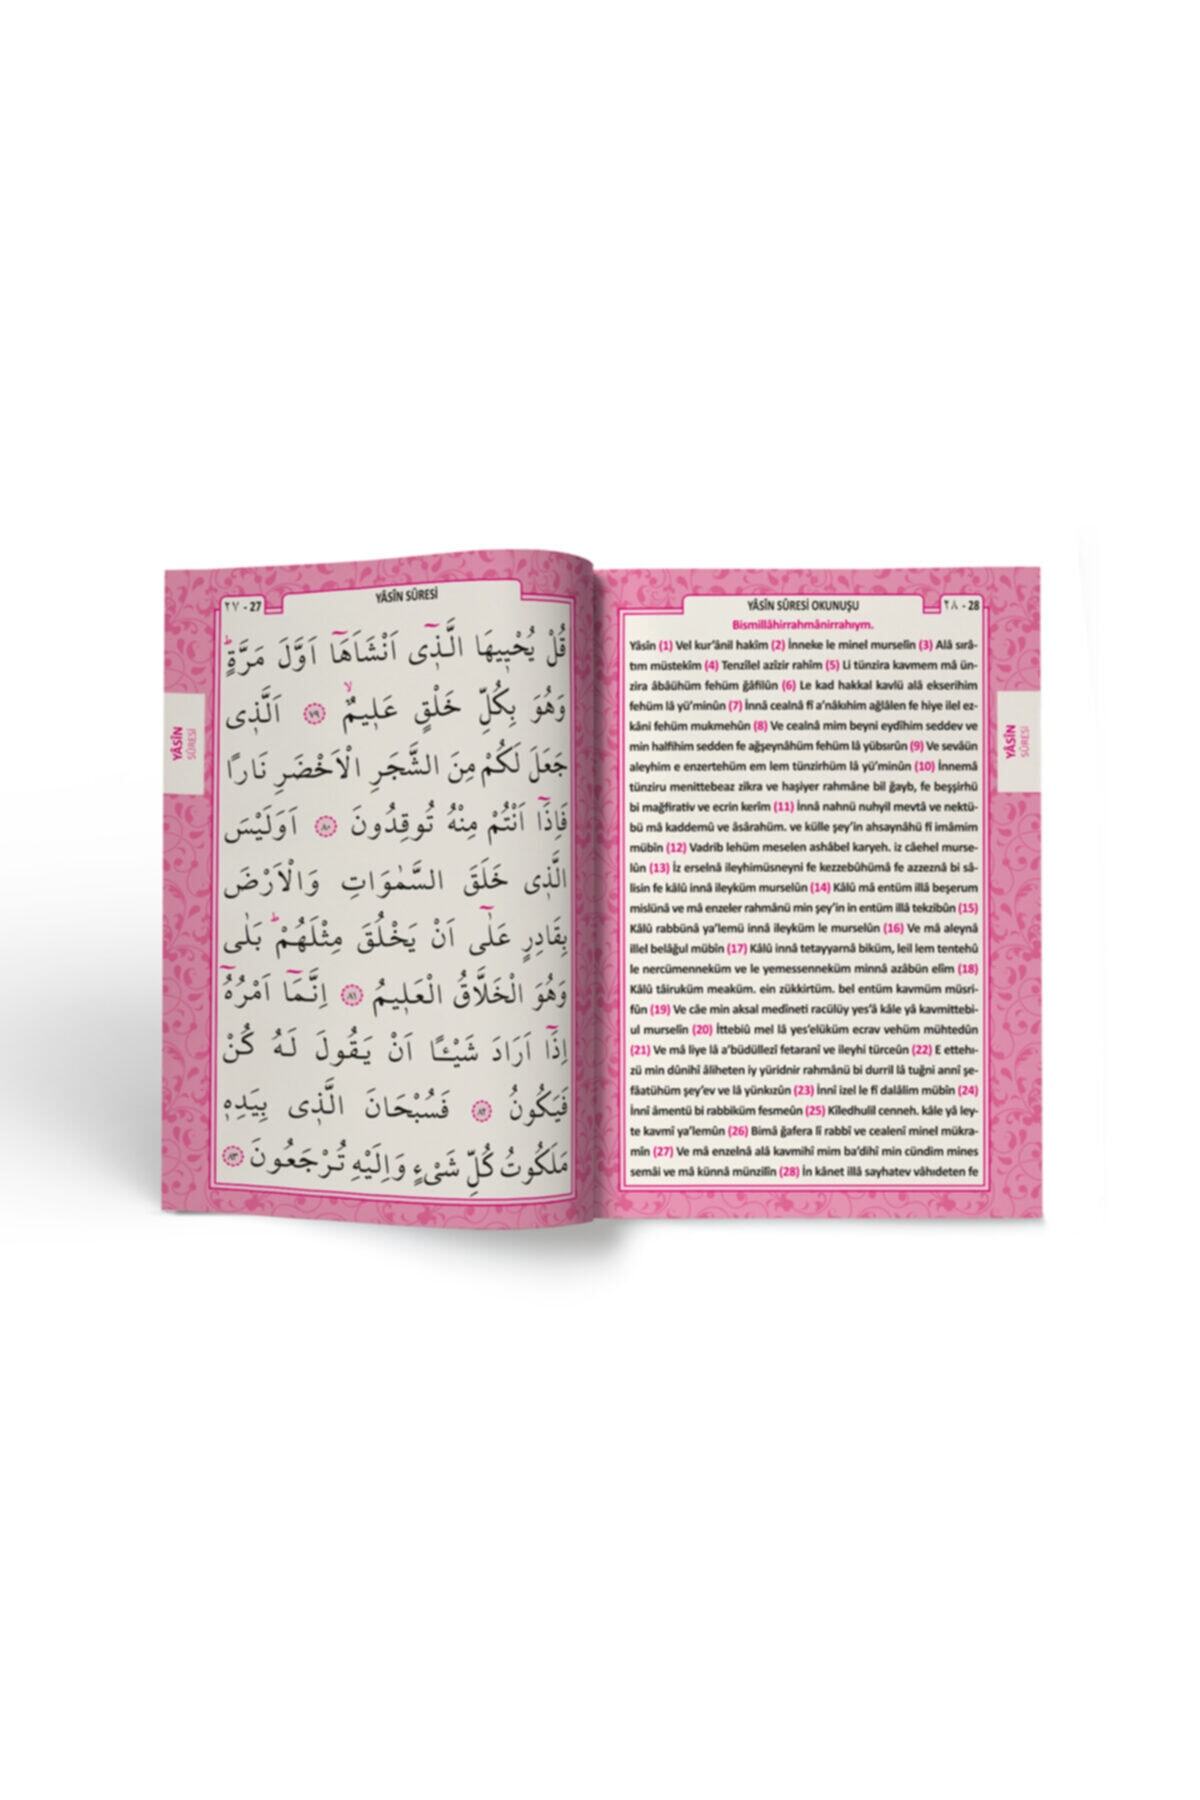 ٢٧ - 27
YÂSÎN SÛRESİ
قُلْ يُحْيٖيهَا الَّـذٖٓى اَنْشَاَهَٓا اَوَّلَ مَرَّةٍؕ
وَهُوَ بِكُلِّ خَلْقٍ عَلٖيمٌۙ ﴿٧٩﴾ اَلَّذٖى
جَعَلَ لَكُمْ مِنَ الشَّجَرِ الْاَخْضَرِ نَارًا
فَاِذَٓا اَنْتُمْ مِنْهُ تُوقِدُونَ ﴿٨٠﴾ اَوَلَيْسَ
الَّذٖى خَلَقَ السَّمٰوَاتِ وَالْاَرْضَ
بِقَادِرٍ عَلٰٓى اَنْ يَخْلُقَ مِثْلَهُمْؕ بَلٰى
وَهُوَ الْخَلَّاقُ الْعَلٖيمُ ﴿٨١﴾ اِنَّمَٓا اَمْرُهُٓ
اِذَٓا اَرَادَ شَيْـًٔا اَنْ يَقُولَ لَهُ كُنْ
فَيَكُونُ ﴿٨٢﴾ فَسُبْحَانَ الَّذٖى بِيَدِهٖ
مَلَكُوتُ كُلِّ شَىْءٍ وَاِلَيْهِ تُرْجَعُونَ ﴿٨٣﴾
YÂSÎN
SÛRESİ
YÂSÎN SÛRESİ OKUNUŞU
٢٨ - 28
Bismillâhirrahmânirrahıym.
Yâsîn (1) Vel kur'ânil hakîm (2) İnneke le minel murselîn (3) Alâ sırâ-
tım müstekîm (4) Tenzîlel azîzir rahîm (5) Li tünzira kavmem mâ ün-
zira âbâühüm fehüm ğâfilûn (6) Le kad hakkal kavlü alâ ekserihim
fehüm lâ yü'minûn (7) İnnâ cealnâ fî a'nâkıhim ağlâlen fe hiye ilel ez-
kâni fehüm mukmehûn (8) Ve cealnâ mim beyni eydîhim seddev ve
min halfihim sedden fe ağşeynâhüm fehüm lâ yübsırûn (9) Ve sevâün
aleyhim e enzertehüm em lem tünzirhüm lâ yü'minûn (10) İnnemâ
tünziru menittebeaz zikra ve haşiyer rahmâne bil ğayb, fe beşşirhü
bi mağfirativ ve ecrin kerîm (11) İnnâ nahnü nuhyil mevtâ ve nektü-
bü mâ kaddemû ve âsârahüm. ve külle şey'in ahsaynâhü fî imâmim
mübîn (12) Vadrib lehüm meselen ashâbel karyeh. iz câehel murse-
lûn (13) İz erselnâ ileyhimüsneyni fe kezzebûhümâ fe azzeznâ bi sâ-
lisin fe kâlû innâ ileyküm murselûn (14) Kâlû mâ entüm illâ beşerum
mislünâ ve mâ enzeler rahmânü min şey'in in entüm illâ tekzibûn (15)
Kâlû rabbünâ ya'lemü innâ ileyküm le murselûn (16) Ve mâ aleynâ
illel belâğul mübîn (17) Kâlû innâ tetayyarnâ biküm, leil lem tentehû
le nercümenneküm ve le yemessenneküm minnâ azâbün elîm (18)
Kâlû tâiruküm meaküm. ein zükkirtüm. bel entüm kavmüm müsri-
fûn (19) Ve câe min aksal medîneti racülüy yes'â kâle yâ kavmittebi-
ul murselîn (20) İttebiû mel lâ yes'elüküm ecrav vehüm mühtedûn
(21) Ve mâ liye lâ a'büdüllezî fetaranî ve ileyhi türceûn (22) E ettehı-
zü min dûnihî âliheten iy yüridnir rahmânü bi durril lâ tuğni annî şe-
fâatühüm şey'ev ve lâ yünkızûn (23) İnnî izel le fî dalâlim mübîn (24)
İnnî âmentü bi rabbiküm fesmeûn (25) Kîledhulil cenneh. kâle yâ ley-
te kavmî ya'lemûn (26) Bimâ ğafera lî rabbî ve cealenî minel mükra-
mîn (27) Ve mâ enzelnâ alâ kavmihî mim ba'dihî min cündim mines
semâi ve mâ künnâ münzilîn (28) İn kânet illâ sayhatev vâhıdeten fe
YÂSÎN
SÛRESİ